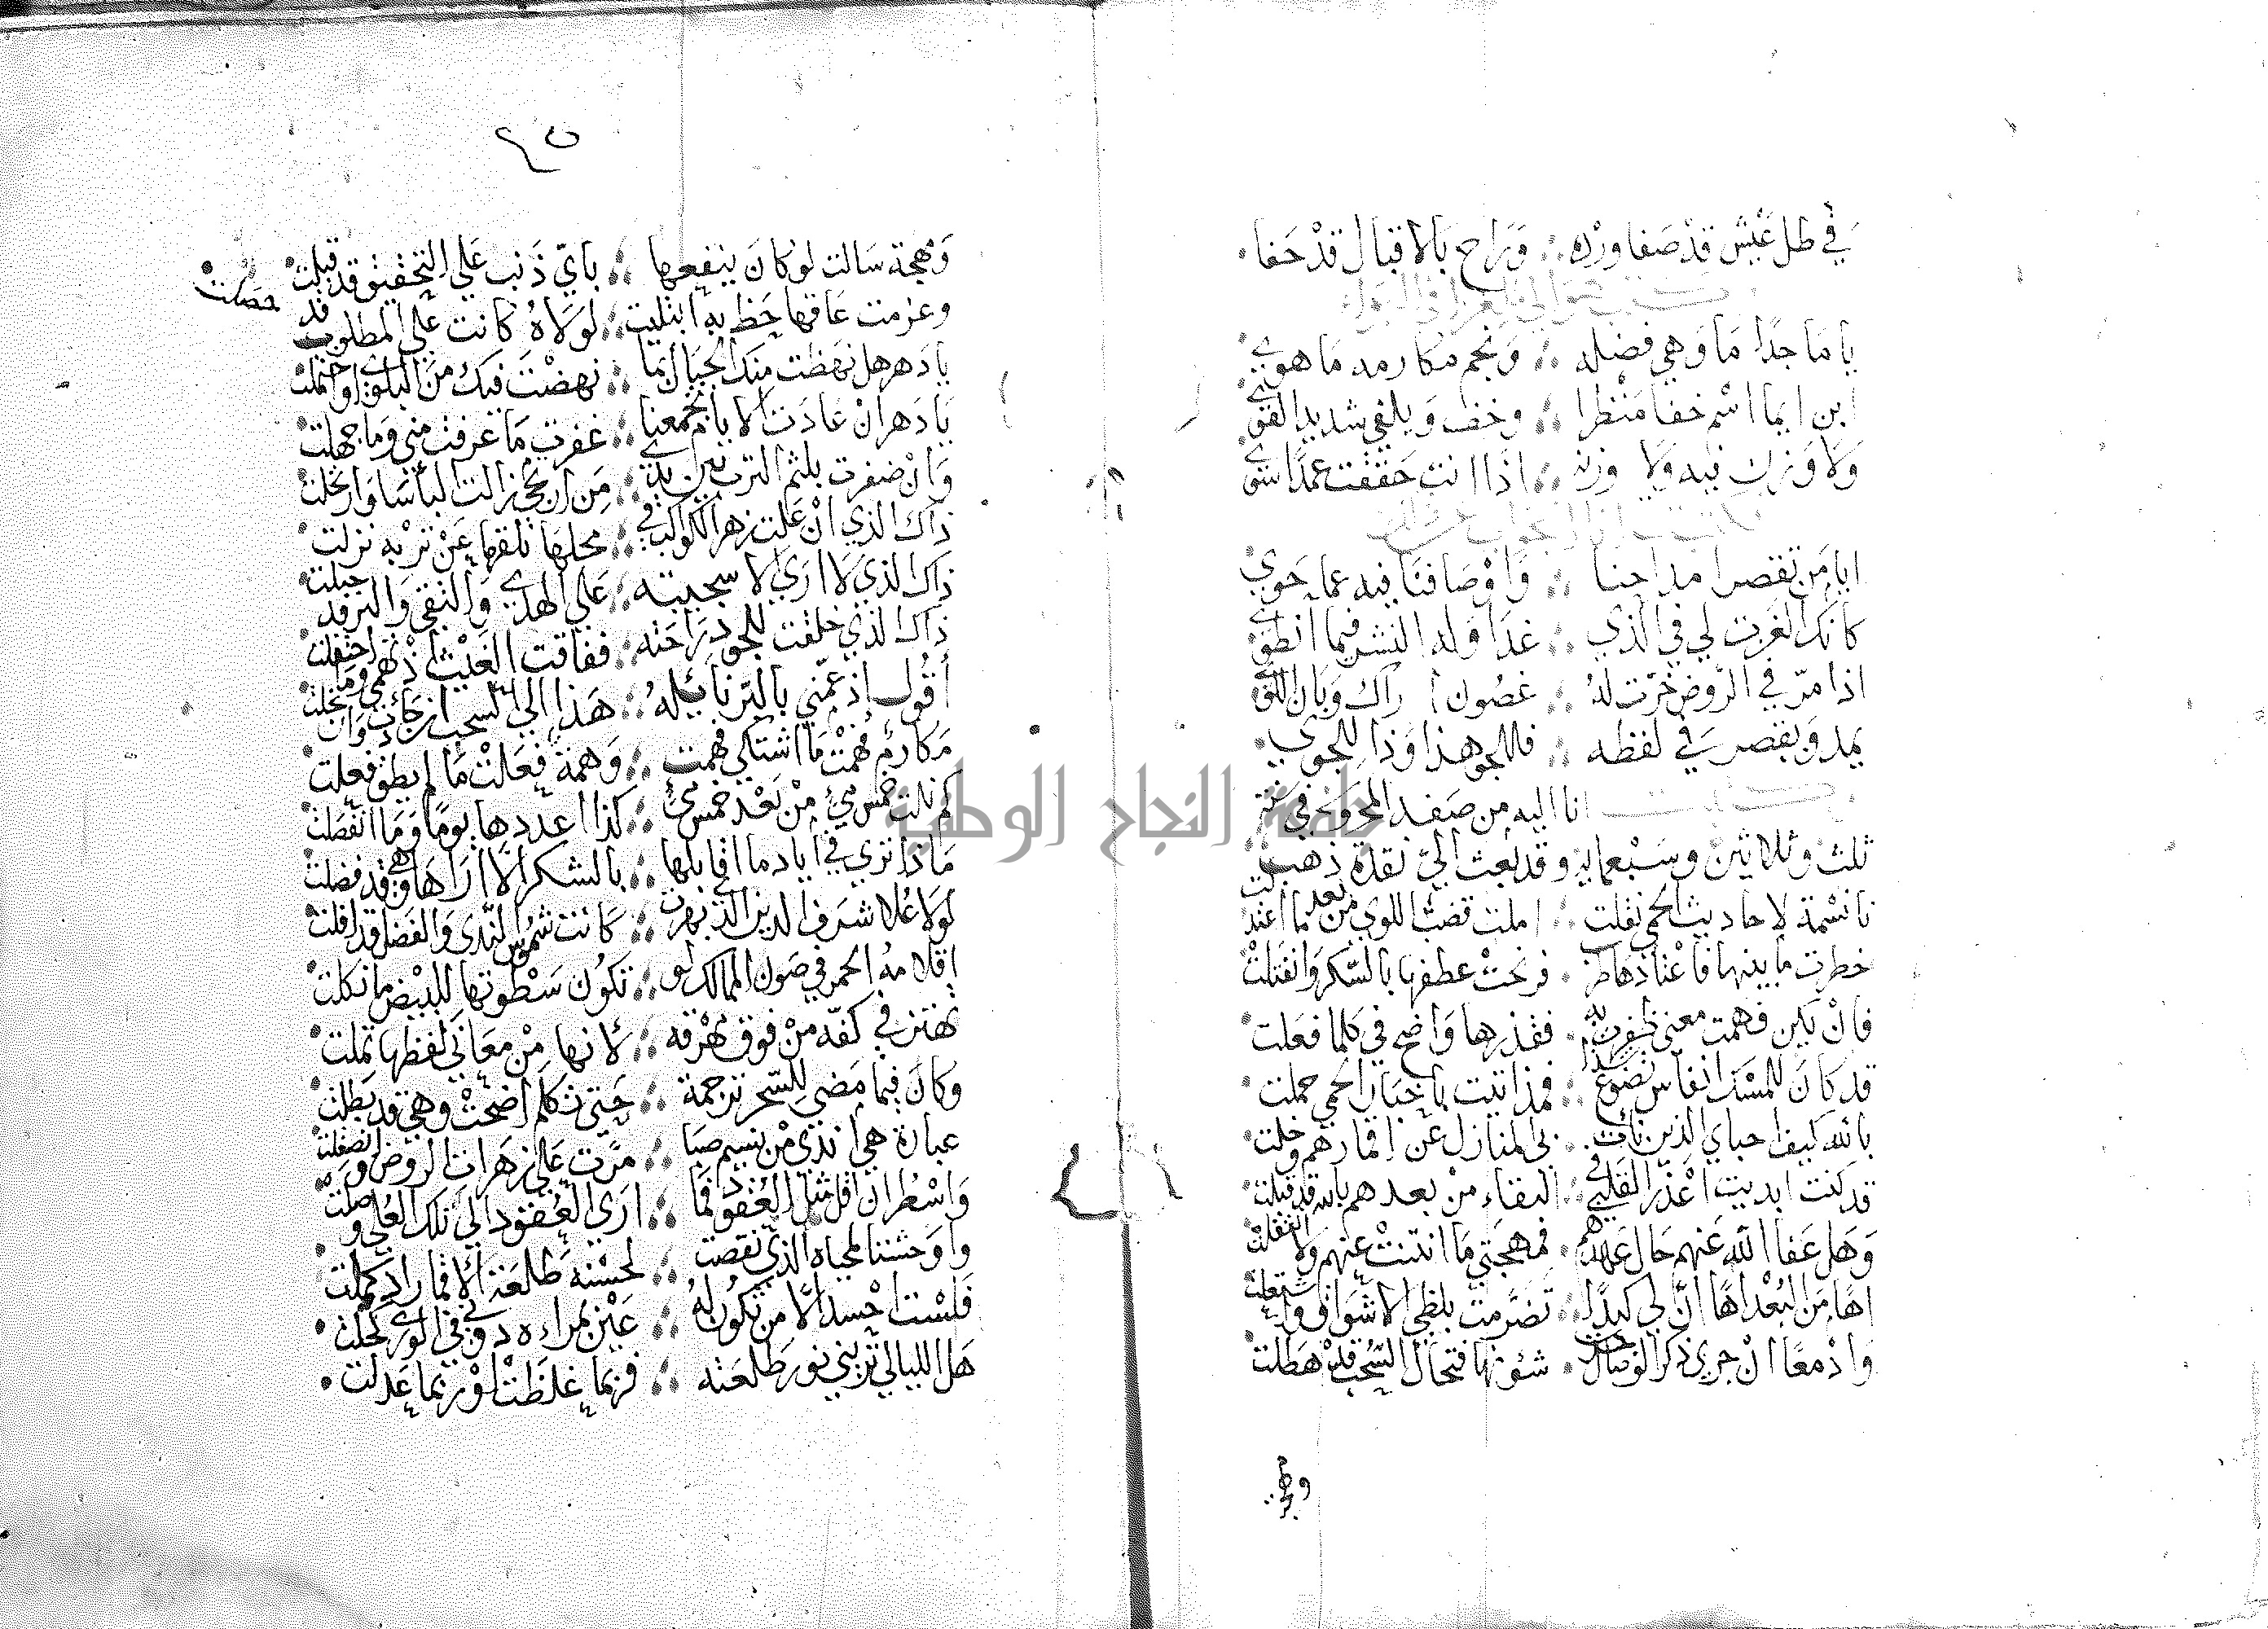 في ظل عيش قد صفا ورده ∴ وراح بالاقبال قد حفا
يا ماجدا ما وهي فضله ∴ ونجم مكارمه ما هوي
ابن ايما اسم خفا منظرا ∴ وخف ويلفي شديد القوي
ولا وزن فيه ولا وزنه ∴ اذا انت حققت عمدا سوي
ايا من تقصر مداحنا ∴ واوصافنا فيه عما حوي
كانك الغزت لي في الذي ∴ غدا وله النشر فيما انطوي
اذا مر في الروض خرت له ∴ غصون اراك وبان اللوي
يمد ويقصر في لفظه ∴ فللجو هذا وذا للجوي
انا اليه من صفد المحروسة في سنة
ثلث وثلاثين وسبعماية وقد بعث الي نقدة ذهب
يا نسمة لاحاديث الحمي نقلت ∴ املت قضب اللوي من بعد ما اعتدلت
خطرت ما بينها فاعتادها طرب ∴ فرنحت عطفها بالسكر وانفتلت
فان يكن فهمت معني ظفرت به ∴ فعذرها واضح في كلما فعلت
قد كان للمسك انفاس تضوع شذا ∴ فمذ اتيت باخبار الحمي خملت
بالله كيف احباي الذين نات ∴ بي المنازل عن اقمارهم وخلت
قد كنت ابديت اعذار القلبي في ∴ البقاء من بعدهم بالله قد قبلت
وهل عفا الله عنهم حال عهدهم ∴ فمهجتي ما انثنت عنهم ولا انتقلت
اها من البعد اها ان لي كبدا ∴ تضرمت بلظي الاشواق واشتعلت
وادمعا ان جري ذكر الوصال جرت ∴ شؤنها فتخال السحب قد هطلت
ومهجة
٢٥
ومهجة سالت لو كان ينفعها ∴ باي ذنب علي التحقيق قد قتلت
وعزمت عاقها حظ به ابتليت ∴ لولاه كانت علي المطلوب قد حصلت
يا دهر هل نهضت منك الجبال بما ∴ نهضت فيك من البلوي او احتملت
يا دهر ان عادت الايام تجمعنا ∴ غفرت ما عرفت مني وما جهلت
وان ظفرت بلثم الترب بين يدي ∴ من ان يجي زالت الباسا وارتحلت
ذاك الذي ان علت زهر الكواكب في ∴ محلها تلقها عن تربه نزلت
ذاك الذي لا اري الا سجيته ∴ علي الهدي والتقي والبر قد جبلت
ذاك الذي خلقت للجود راحته ∴ ففاقت الغيث اذ تهمي وما احتفلت
اقول اذ عمني بالبر نائله ∴ هذا الحي السحب ان جادت وان بخلت
مكارم فهمت ما اشتكي فهمت ∴ وهمة فعلت ما لم يطق فعلت
كم نلت خمس مئ من بعد خمس مئ ∴ كذا اعددها يوما وما انفصلت
ماذا تري في اياد ما اقابلها ∴ بالشكر الا اراها وهي قد فضلت
لولا علا شرف الدين الذي بهرت ∴ كانت شموس الندي والفضل قد افلت
اقلامه الحمر في صون الممالك لو ∴ تكون سطوتها للبيض ما نكلت
تهتز في كفه من فوق مهرقه ∴ لانها من معاني لفظها ثملت
وكان فيما مضي للسحر ترجمة ∴ حتي تكلم اضحت وهي قد بطلت
عبارة هي اندي من نسيم صبا ∴ مرت علي زهرات الروض وانصقلت
واسطر ان اقل مثل العقود فما ∴ اري العقود الي تلك العلي وصلت
واوحشتنا لمحياه الذي نقصت ∴ لحسنه طلعة الاقمار اذ كملت
فلست احسد الا من تكون له ∴ عين بمراه دوني في الوري كحلت
هل الليالي تريني نور طلعته ∴ فربما غلظت او ربما عدلت
جامعة النجاح الوطنية